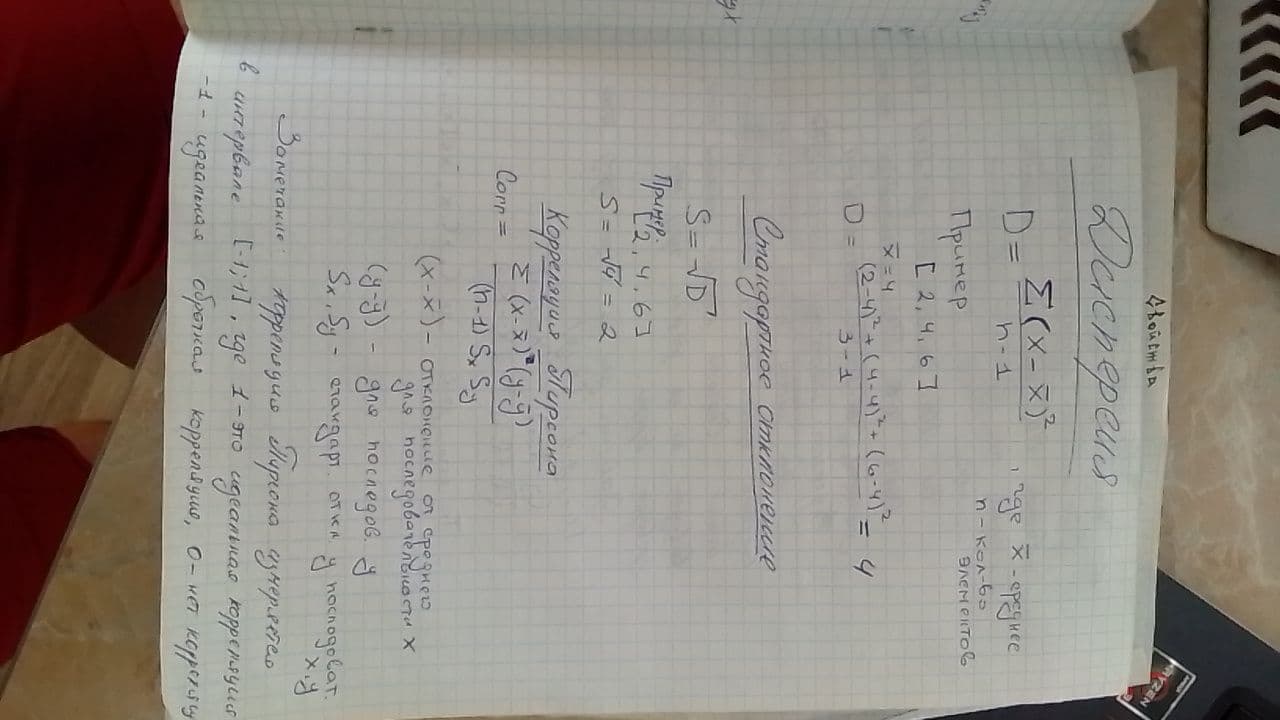 Свойства
Дисперсия
D = Σ(x - x̄)² / n - 1 , где x̄ - среднее
n - кол-во
элементов
Пример
[2, 4, 6]
x̄ = 4
D = (2-4)² + (4-4)² + (6-4)² / 3 - 1 = 4
Стандартное отклонение
S = √D
Пример.
[2, 4, 6]
S = √4 = 2
Корреляция Пирсона
Corr = Σ (x-x̄) (y-ȳ) / (n-1) Sx Sy
(x-x̄) - отклонение от среднего
для последовательности x
(y-ȳ) - для последов. y
Sx, Sy - стандарт. откл. у посподоват.
x, y
Замечание: корреляция Пирсона измеряется
в интервале [-1; 1], где 1 - это идеальная корреляция
-1 - идеальная обратная корреляция, 0 - нет корреляц
RYZEN